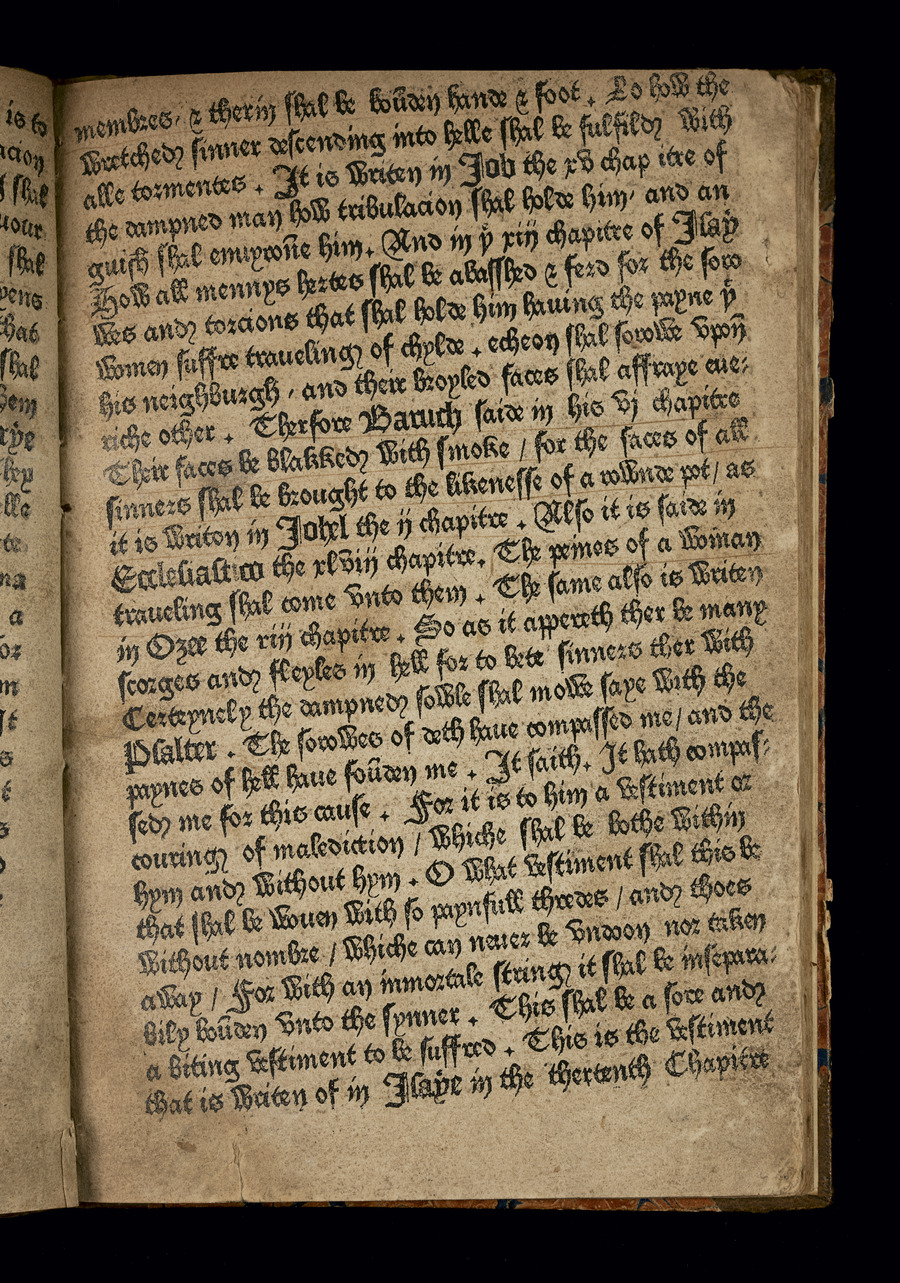 is to
acion
shal
uour
shal
yens
that
shal
hem
hey
elle
te
na
a
or
m
It
s
t
s
membres, & therin shal be boūden hande & foot . Lo how the
wretched sinner descending into helle shal be fulfild with
alle tormentes . It is writen in Job the xv chap itre of
the dampned man how tribulacion shal holde him, and an
guish shal enuyrōne him. And in yͤ xiij chapitre of Isaÿ
How all mennys hertes shal be abasshed & ferd for the soro
wes and torcions that shal holde him hauing the payne yͭ
women suffre traueling of chylde . echeon shal sorowe vpon
his neighburgh , and their broyled faces shal affraye eue⸗
riche other . Therfore Baruch saide in his vj chapitre
Their faces be blakked with smoke / for the faces of all
sinners shal be brought to the likenesse of a rownde pot / as
it is writon in Johel the ij chapitre . Also it is saide in
Ecclesiastico the xlviij chapitre. The peines of a woman
traueling shal come vnto them . The same also is writen
in Ozee the xiij chapitre . So as it appereth ther be many
scorges and fleyles in hell for to bete sinners ther with
Certeynely the dampned sowle shal mowe saye with the
Psalter . The sorowes of deth haue compassed me / and the
paynes of hell haue foūden me . It saith. It hath compas⸗
sed me for this cause . For it is to him a vestiment or
couring of malediction / whiche shal be bothe within
hym and without hym . O what vestiment shal this be
that shal be wouen with so paynfull thredes / and thoes
without nombre / whiche can neuer be vndoon nor taken
away / For with an inmortale string it shal be insepara⸗
bily boūden vnto the synner . This shal be a sore and
a biting vestiment to be suffred . This is the vestiment
that is writen of in Isaÿe in the thertenth Chapitre